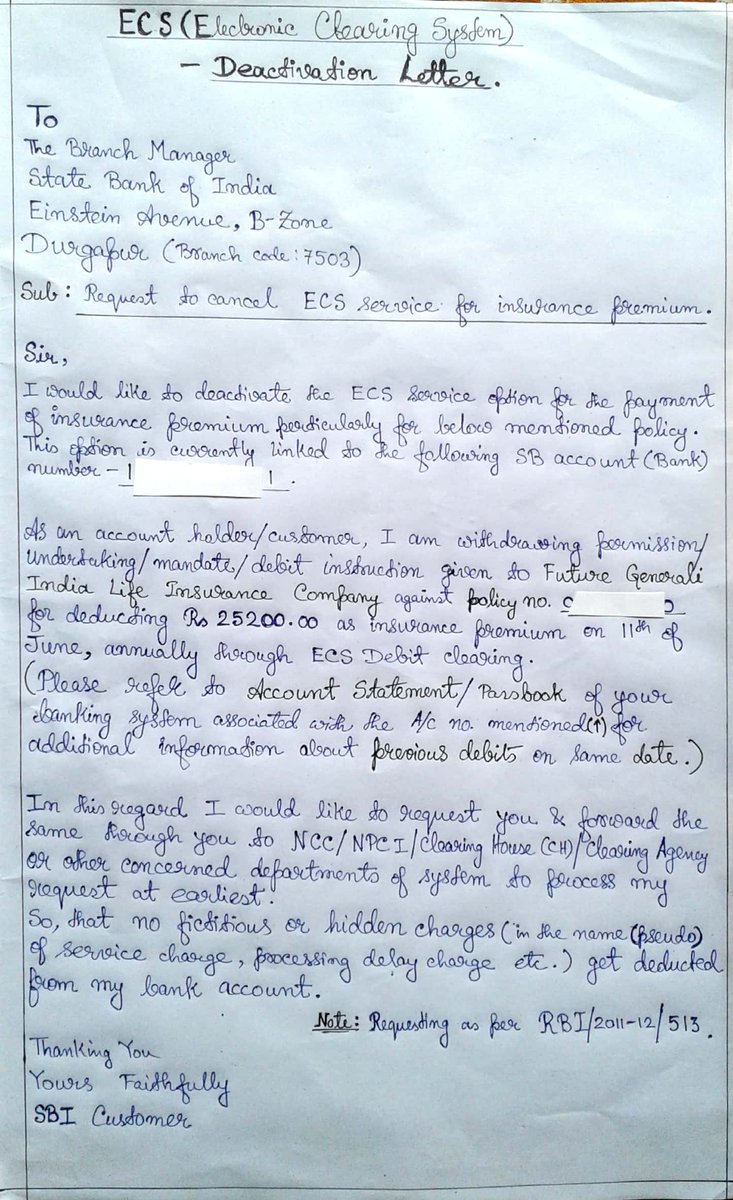 ECS (Electronic Clearing System)
- Deactivation Letter.
To
The Branch Manager
State Bank of India
Einstein Avenue, B-Zone
Durgapur (Branch code: 7503)
Sub: Request to cancel ECS service for insurance premium.
Sir,
I would like to deactivate the ECS service option for the payment
of insurance premium perticularly for below mentioned policy.
This option is currently linked to the following SB account (Bank)
number -
As an account holder/customer, I am withdrawing permission/
undertaking/mandate/debit instruction given to Future Generali
India Life Insurance Company against policy no.
for deducting Rs 25200.00 as insurance premium on 11th of
June, annually through ECS Debit clearing.
(Please refer to Account Statement/Passbook of your
banking system associated with the A/c no. mentioned(↑) for
additional information about previous debits on same date.)
In this regard I would like to request you & forward the
same through you to NCC/NPCI/Clearing House (CH)/Clearing Agency
or other concerned departments of system to process my
request at earliest.
So, that no fictitious or hidden charges (in the name (pseudo)
of service charge, processing delay charge etc.) get deducted
from my bank account.
Note: Requesting as per RBI/2011-12/513.
Thanking You
Yours Faithfully
SBI Customer